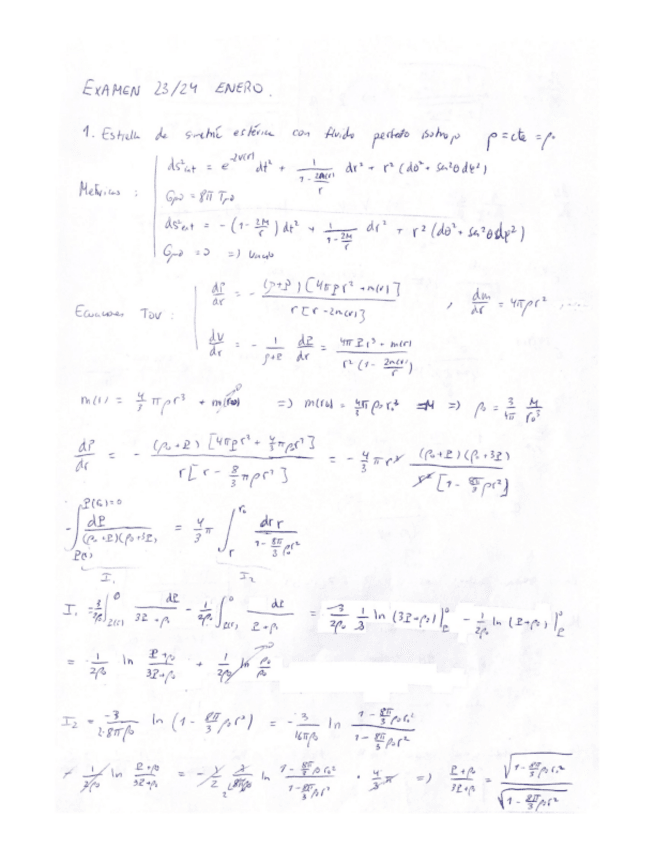 EXAMEN 23/24 ENERO.
1. Estrella de simetría esférica con fluido perfecto isótropo ρ = cte = ρ₀
Métricas : ds²int = e^{2ν(r)} dt² + 1/(1 - 2m(r)/r) dr² + r² (dθ² + sen²θ dφ²)
= 8π
ds²ext = -(1 - 2M/r) dt² + 1/(1 - 2M/r) dr² + r² (dθ² + sen²θ dφ²)
= 0 =>
Ecuaciones TOV : dP/dr = - (ρ+P) [4πPr³ + m(r)] / r[r - 2m(r)] , dm/dr = 4πρr²
dν/dr = - 1/(ρ+P) dP/dr = (4πPr³ + m(r)) / r²(1 - 2m(r)/r)
m(r) = 4/3 πρr³ + => m(r₀) = 4π/3 ρ₀r₀³ = M => ρ₀ = 3/4π M/r₀³
dP/dr = - (ρ₀+P) [4πPr³ + 4/3 πρ₀r³] / r[r - 8/3 πρr³] = - 4/3 πr (ρ₀+P)(ρ₀+3P) / [1 - 8π/3 ρr²]
-∫_{P(r)}^{P(r₀)=0} dP/((ρ₀+P)(ρ₀+3P)) = 4/3 π ∫_r^{r₀} dr r/(1 - 8π/3 ρ₀r²)
I₁ I₂
I₁ = 3/2ρ₀ ∫_{P(r)}^0 dP/(3P+ρ₀) - 1/2ρ₀ ∫_{P(r)}^0 dP/(P+ρ₀) = 3/2ρ₀ 1/3 ln (3P+ρ₀)]_P^0 - 1/2ρ₀ ln (P+ρ₀)]_P^0
= 1/2ρ₀ ln (P+ρ₀)/(3P+ρ₀) + 1/2ρ₀ ln ρ₀/ρ₀
I₂ = -3/(2·8πρ₀) ln (1 - 8π/3 ρ₀r²) = -3/16πρ₀ ln (1 - 8π/3 ρ₀r₀²)/(1 - 8π/3 ρ₀r²)
ln (P+ρ₀)/(3P+ρ₀) = ln (1 - 8π/3 ρ₀r₀²)/(1 - 8π/3 ρ₀r²) · 4/3 π => (P+ρ₀)/(3P+ρ₀) = √(1 - 8π/3 ρ₀r₀²) / √(1 - 8π/3 ρ₀r²)